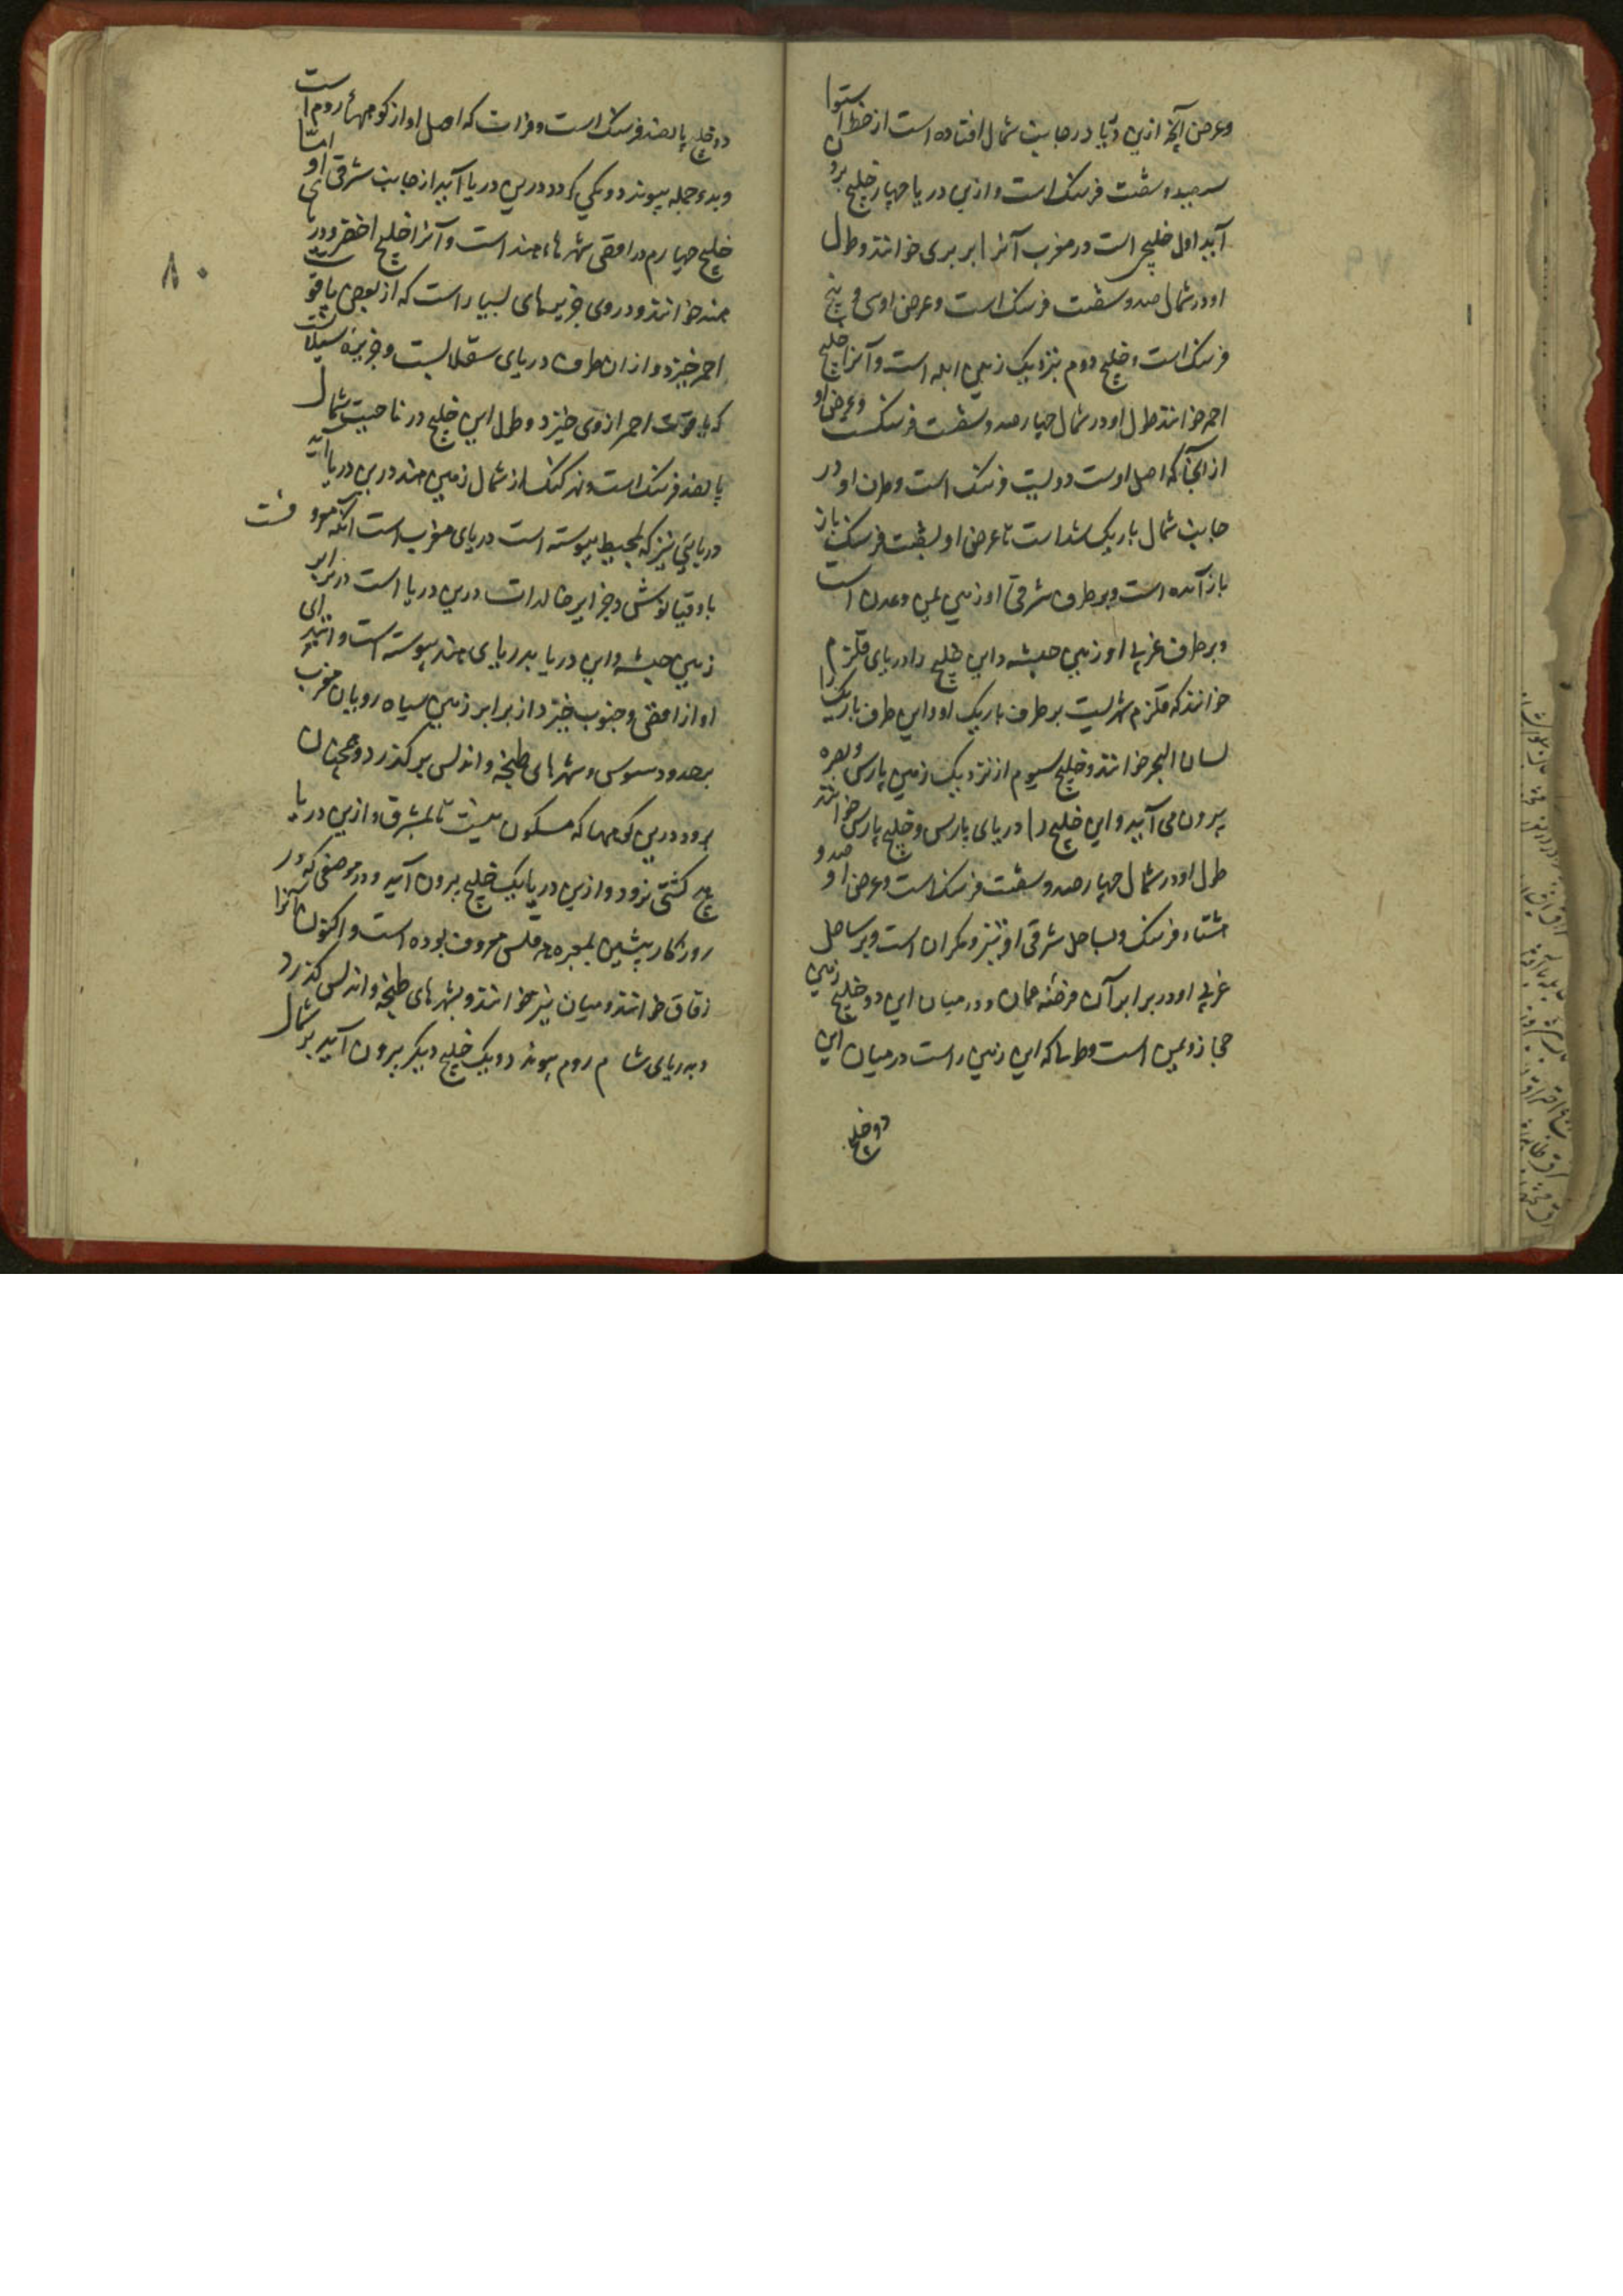 وعرض آنچه ازین دریا در جانب شمال افتاده است از خط استوا
سیصد و شصت فرسنک است وازین دریا چهار خلیج برون
آید اول خلیجی است در مغرب آنرا بربری خوانند وطول
او در شمال صد و شصت فرسنک است وعرض او سی و پنج
فرسنک است و خلیج دوم بنزدیک زمین ابله است وآنرا خلیج
احمر خوانند طول او در شمال چهار صد و شصت فرسنکست وعرض او
از آنجا که اصل اوست دویست فرسنک است وطرف او در
جانب شمال باریک شده است تا عرض او بشصت فرسنک باز
باز آمده است وبر طرف شرقی او زمین یمن وعدن است
وبر طرف غربی او زمین حبشه واین خلیج را دریای قلزم
خوانند که قلزم شهریست بر طرف باریک او واین طرف باریک را
لسان البحر خوانند وخلیج سیوم از نزدیک زمین پارس وبصره
برون می آید واین خلیج را دریای پارس وخلیج پارس خوانند
طول او در شمال چهار صد و شصت فرسنک است وعرض او صد و
هشتاد فرسنک وبساحل شرقی او تیز ومکران است وبر ساحل
غربی او در برابر آن فرضه عمان ودر میان این دو خلیج زمین
حجاز ویمن است و که این زمین راست در میان این
دو خلیج
۸۰
دو خلیج پانصد فرسنک است وفرات که اصل او از کوههاء روم است
وبدجله پیوندد ویکی کردد درین دریا آید از جانب شرقی او اما
خلیج چهارم در اقصی شهرهاء هند است وآنرا خلیج اخضر ودریای
هند خوانند ودر وی جزیرهای بسیار است که از بعضی یاقوت
احمر خیزد و از ان طرف دریای سقلابست وجزیره سیلان
که یاقوت احمر از وی خیزد وطول این خلیج در ناحیت شمال
پانصد فرسنک است ونهر کنک از شمال زمین هند درین دریا آید
دریائی نیز که بمحیط پیوسته است دریای مغرب است آنکه معروفست
باوقیانوش وجزایر خالدات درین دریا است در برابر
زمین حبشه واین دریا بدریای هند پیوسته است وابتدای
او از اقصی جنوب خیزد از برابر زمین سیاه رویان مغرب
بر حدود سوس وشهرهای طنجه واندلس بر کذرد وهمچنان
برود درپس کوهها که مسکون نیست تا بمشرق وازین دریا
هیچ کشتی نرود وازین دریا یک خلیج برون آید ودر موضعی که در
روزکار پیشین معروف بوده است واکنون آنرا
زقاق خوانند ومیان نیز خوانند وبشهرهای طنجه واندلس کذرد
وبدریای شام روم پیوندد ویک خلیج دیکر برون آید بر شمال